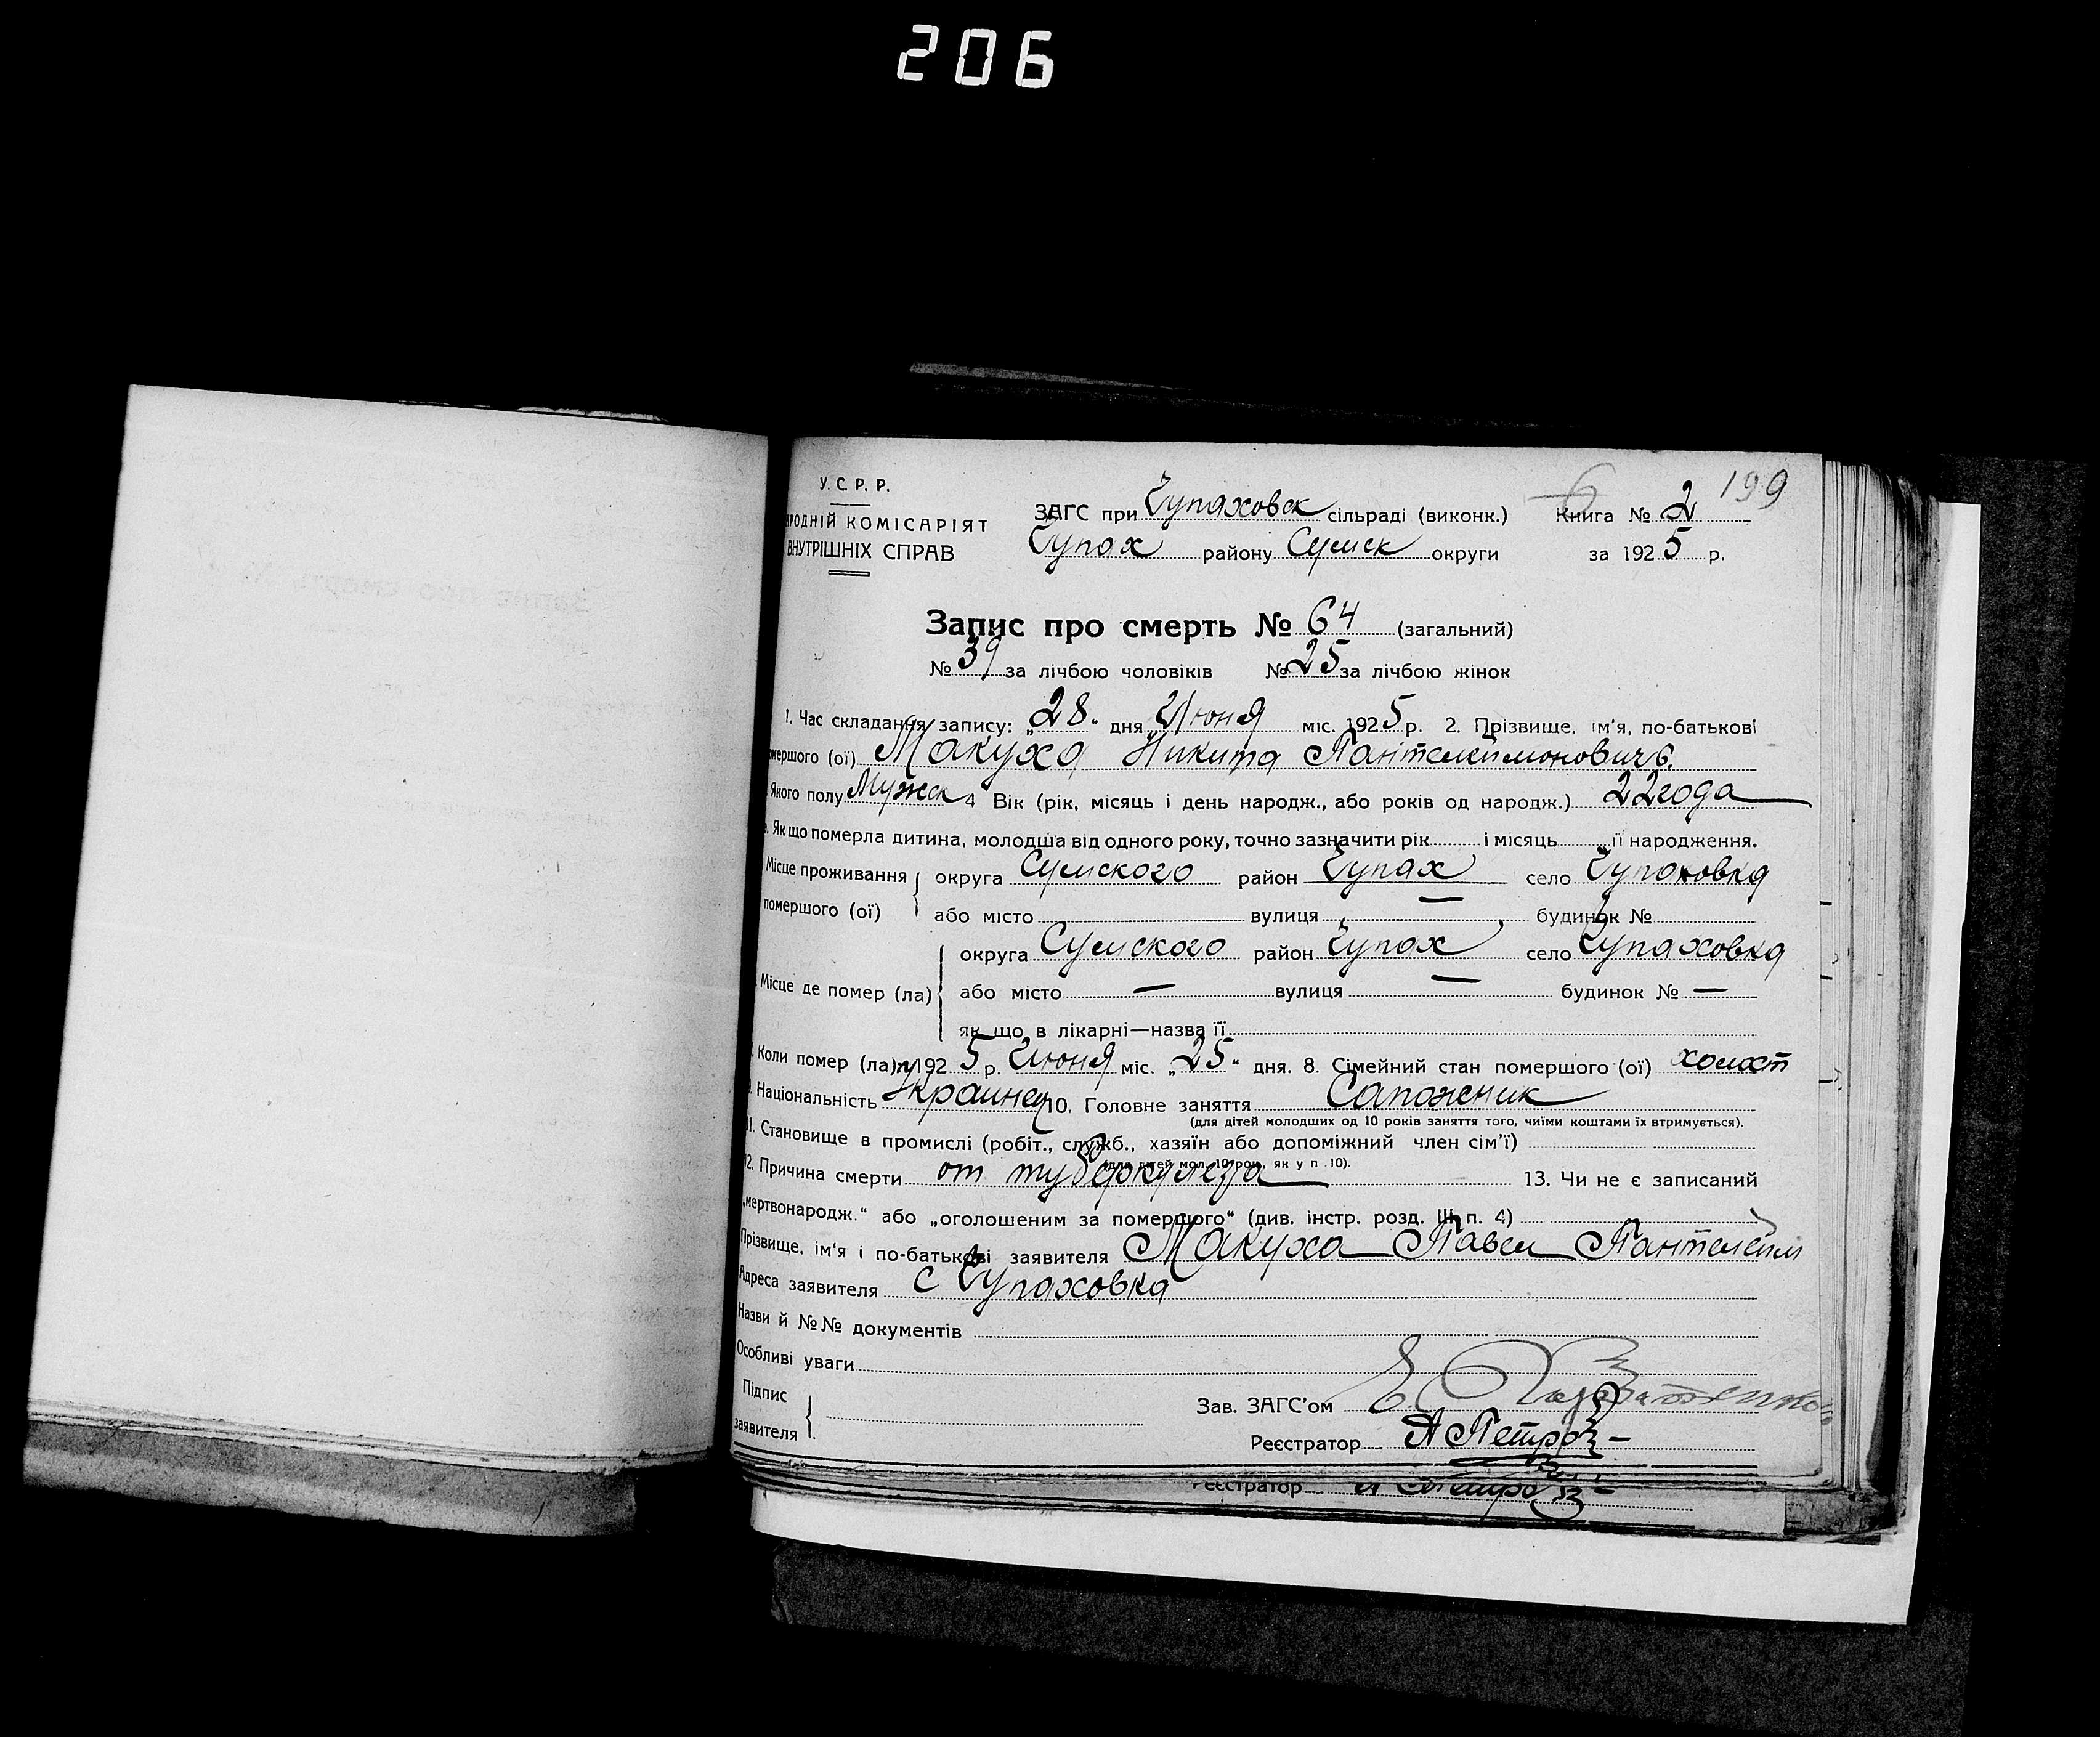 206
199
У. С. Р. Р.
РОДНІЙ КОМІСАРІЯТ
ВНУТРІШНІХ СПРАВ
ЗАГС при Чупаховск сільраді (виконк.) Книга № 2
Чупах району Сумск округи за 1925 р.
Запис про смерть № 64 (загальний)
№ 39 за лічбою чоловіків № 25 за лічбою жінок
1. Час складання запису: „28“ дня Июня міс. 1925 р. 2. Прізвище, ім'я, по-батькові
мершого (ої) Макуха Никита Пантелеймоновичъ
Якого полу Мужск 4 Вік (рік, місяць і день народж., або років од народж.) 22 года
Якщо померла дитина, молодша від одного року, точно зазначити рік і місяць її народження.
Місце проживання округа Сумского район Чупах село Чупаховка
помершого (ої) або місто вулиця — будинок №
округа Сумского район Чупах село Чупаховка
Місце де помер (ла) або місто — вулиця — будинок № —
як що в лікарні—назва її
Коли помер (ла): 1925 р. Июня міс. „25“ дня. 8. Сімейний стан помершого (ої) холост
Національність Украинец 10. Головне заняття Сапожник
(для дітей молодших од 10 років заняття того, чиїми коштами їх втримується).
11. Становище в промислі (робіт., служб., хазяїн або допоміжний член сім'ї)
(для дітей мол. 10 рок. як у п. 10).
12. Причина смерти от туберкулеза 13. Чи не є записаний
„мертвонародж.“ або „оголошеним за помершого“ (див. інстр. розд. III п. 4)
Прізвище, ім'я і по-батькові заявителя Макуха Павел Пантелейм
Адреса заявителя с Чупаховка
Назви й №№ документів
Особливі уваги
Підпис
заявителя
Зав. ЗАГС'ом
Реєстратор А Петро
Реєстратор